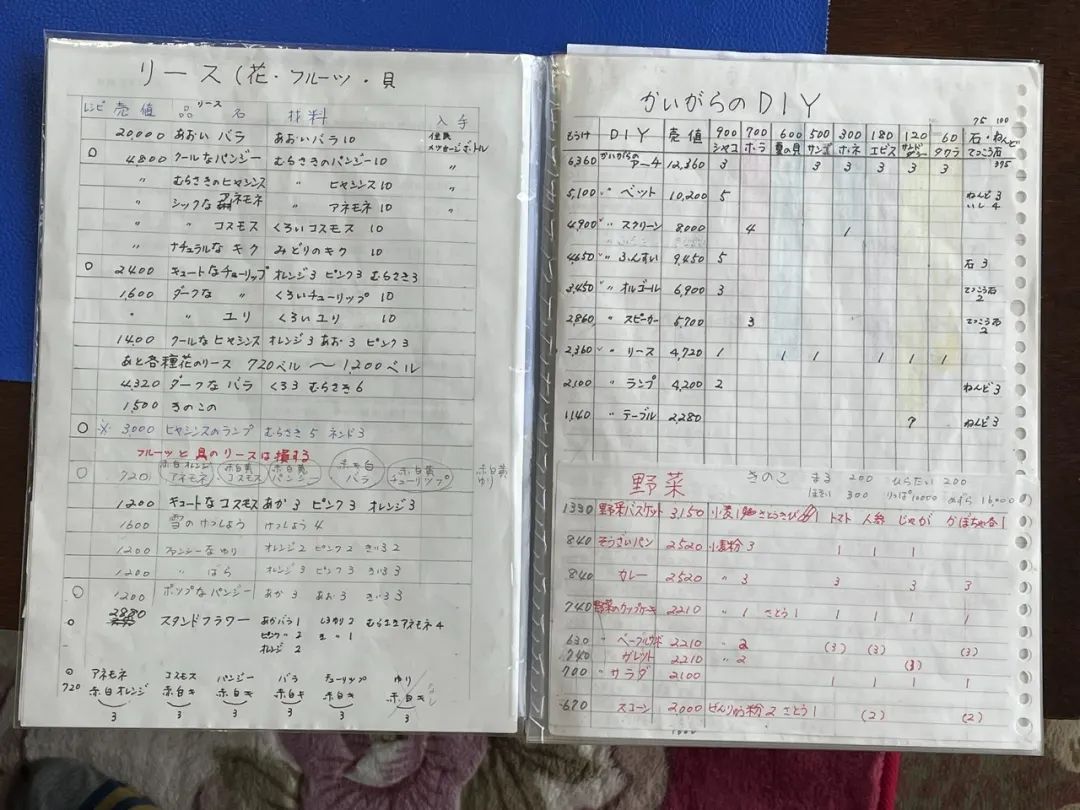 リース(花・フルーツ・貝
レシピ 売値 品 リース 名 材料 入手
20000 あおい バラ あおいバラ 10 住民 メッセージボトル
○ 4800 クールなパンジー むらさきのパンジー 10 〃
〃 むらさきのヒヤシンス 〃 ヒヤシンス 10 〃
〃 シックな アネモネ 〃 アネモネ 10 〃
〃 〃 コスモス くろいコスモス 10
〃 ナチュラルな キク みどりのキク 10
○ 2400 キュートなチューリップ オレンジ3 ピンク3 むらさき3
1,600 ダークな 〃 くろいチューリップ 10
〃 〃 ユリ くろいユリ 10
1400 クールな ヒヤシンス オレンジ3 あお3 ピンク3
あと各種花のリース 720ベル 〜 1,200ベル
4,320 ダークな バラ くろ3 むらさき6
1,500 きのこの
○ ※ 3,000 ヒヤシンスのランプ むらさき5 ネンド3
フルーツと貝のリースは損する
○ 720 赤白オレンジ アネモネ 赤白黄 コスモス 赤白黄 パンジー 赤キ白 バラ 赤白黄 チューリップ 赤白黄 ゆり
1200 キュートなコスモス あか3 ピンク3 オレンジ3
1600 雪のけっしょう けっしょう4
1200 ファンシーなゆり オレンジ2 ピンク2 きいろ2
1200 〃 ばら オレンジ3 ピンク3 きいろ3
○ 1200 ポップなパンジー あか3 あお3 きいろ3
○ 2880 スタンドフラワー あかバラ1 しろゆり2 むらさきアネモネ4
ピンク〃 2 〃 1
オレンジ 2
○ アネモネ コスモス パンジー バラ チューリップ ゆり
720 赤白オレンジ 赤白キ 赤白キ 赤白キ 赤白キ 赤白キ
3 3 3 3 3 3
かいがらのDIY
75 100
もうけ DIY 売値 900 シャコ 700 ホラ 600 夏の貝 500 サンゴ 300 ホネ 180 エビス 120 サンドダラー 60 タカラ 石・ねんど てっこう石
375
6,360 かいがらの アーチ 12,360 3 3 3 3 3 3
5,100 〃 ベット 10,200 5 ねんど3 いし4
4,900 〃 スクリーン 8,000 4 1
4650 〃 ふんすい 9,450 5 石3
3,450 〃 オルゴール 6,900 3 てっこう石 2
2,860 〃 スピーカー 5,700 3 てっこう石 2
2,360 〃 リース 4,720 1 1 1 1 1 1
2,100 〃 ランプ 4,200 2 ねんど3
1,140 〃 テーブル 2,280 7 ねんど3
野菜 きのこ まる 200 ひらたい 200
ほそい 300 りっぱ10000 めずら 16,000
1330 野菜バスケット 3150 小麦1 さとうきび 1 トマト 人参 じゃが かぼちゃ各1
840 そうざいパン 2520 小麦粉3 1 1 1
840 カレー 2520 〃 3 3 3 3
740 野菜のカップケーキ 2210 〃 1 さとう1 1 1 1 1
630 〃 2210 〃 2 (3) (3) (3)
740 ガレット 2210 〃 2 (3)
700 〃 サラダ 2100 1 1 1 1
670 スコーン 2,000 ぜんりゅう粉2 さとう1 (2) (2)